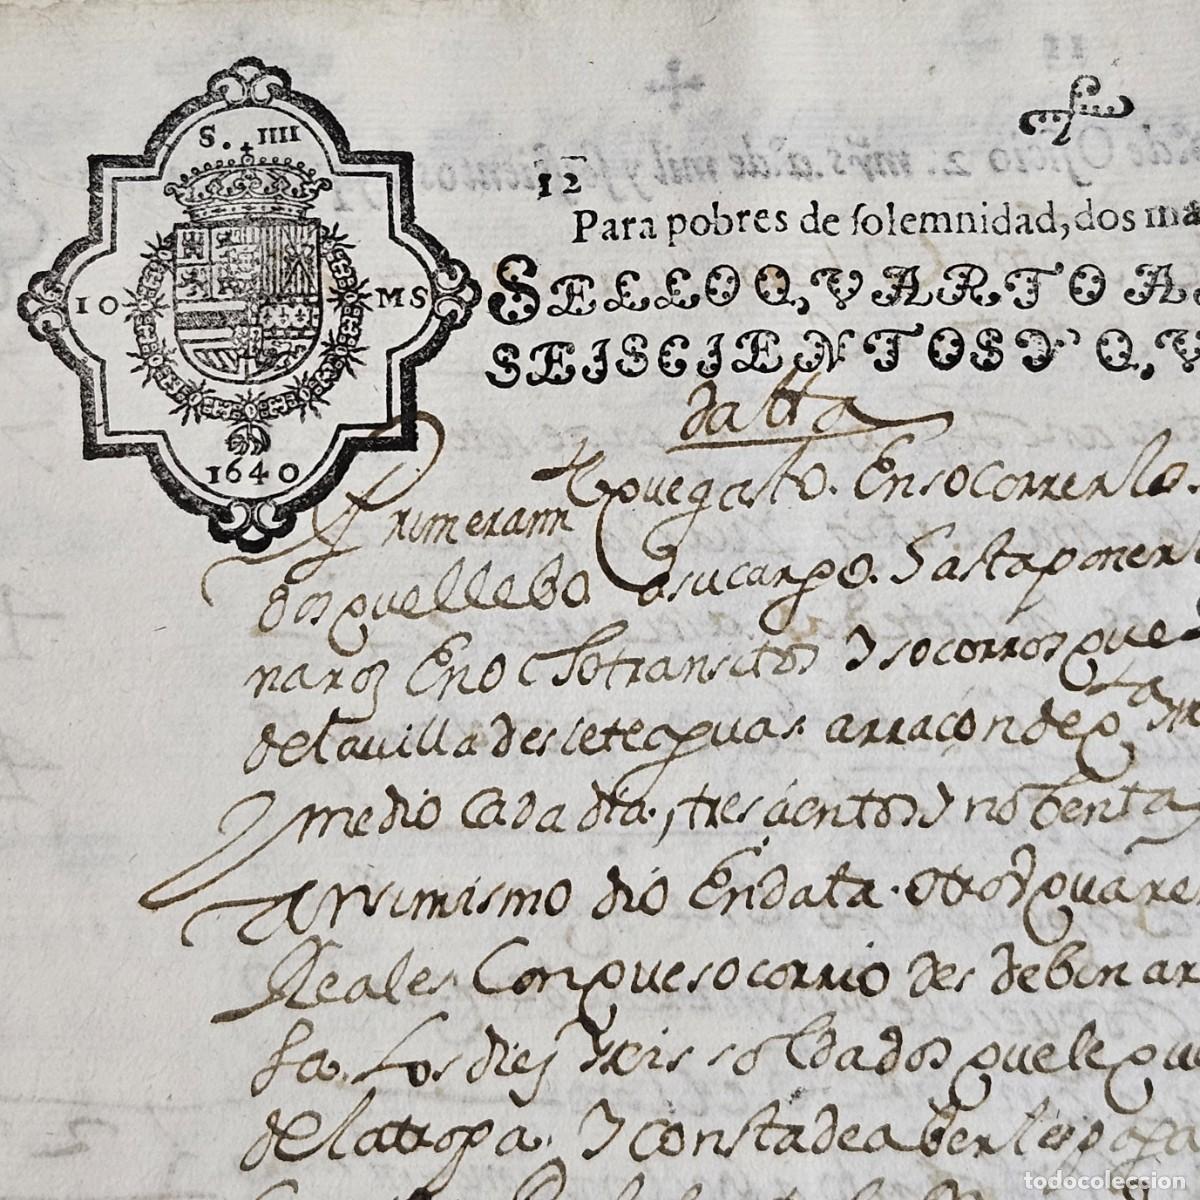 S. IIII
10 MS
1640
12
Para pobres de solemnidad, dos ma
SELLO QVARTO A
SEISCIENTOS Y QV
datta
Primeramn que gasto. En socorrer los
dos que llebo a su cargo. Hasta poner
naroz En ocho transitos Y socorros que
de la villa de siete eguas. a rraçon de
Y medio Cada dia, trescientos Y nobenta
Assimismo dio En data. otros quare
Reales Con que socorrio desde binar
fa. Los diez Y seis soldados que le que
de la tropa. Y consta de aberles paga
todocoleccion